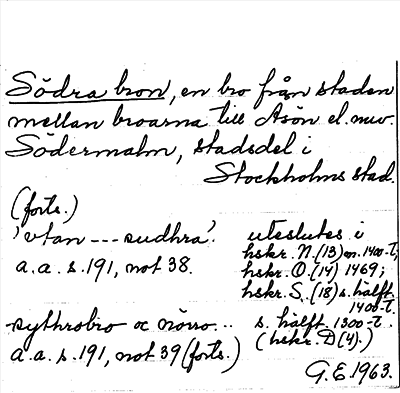 Södra bron, en bro från staden
mellan broarna till Åsön el. nuv.
Södermalm, stadsdel i
Stockholms stad.
(forts.)
'vtan --- sudhra'.
a.a. s.191, not 38.
uteslutes i
hskr. N.(13) m. 1400-t;
hskr. O.(14) 1469;
hskr. S.(18) s. hälft.
1400-t.
sythrobro oc nöro...
a.a. s.191, not 39 (forts.)
s. hälft. 1300-t.
(hskr. D(4).)
G.E. 1963.